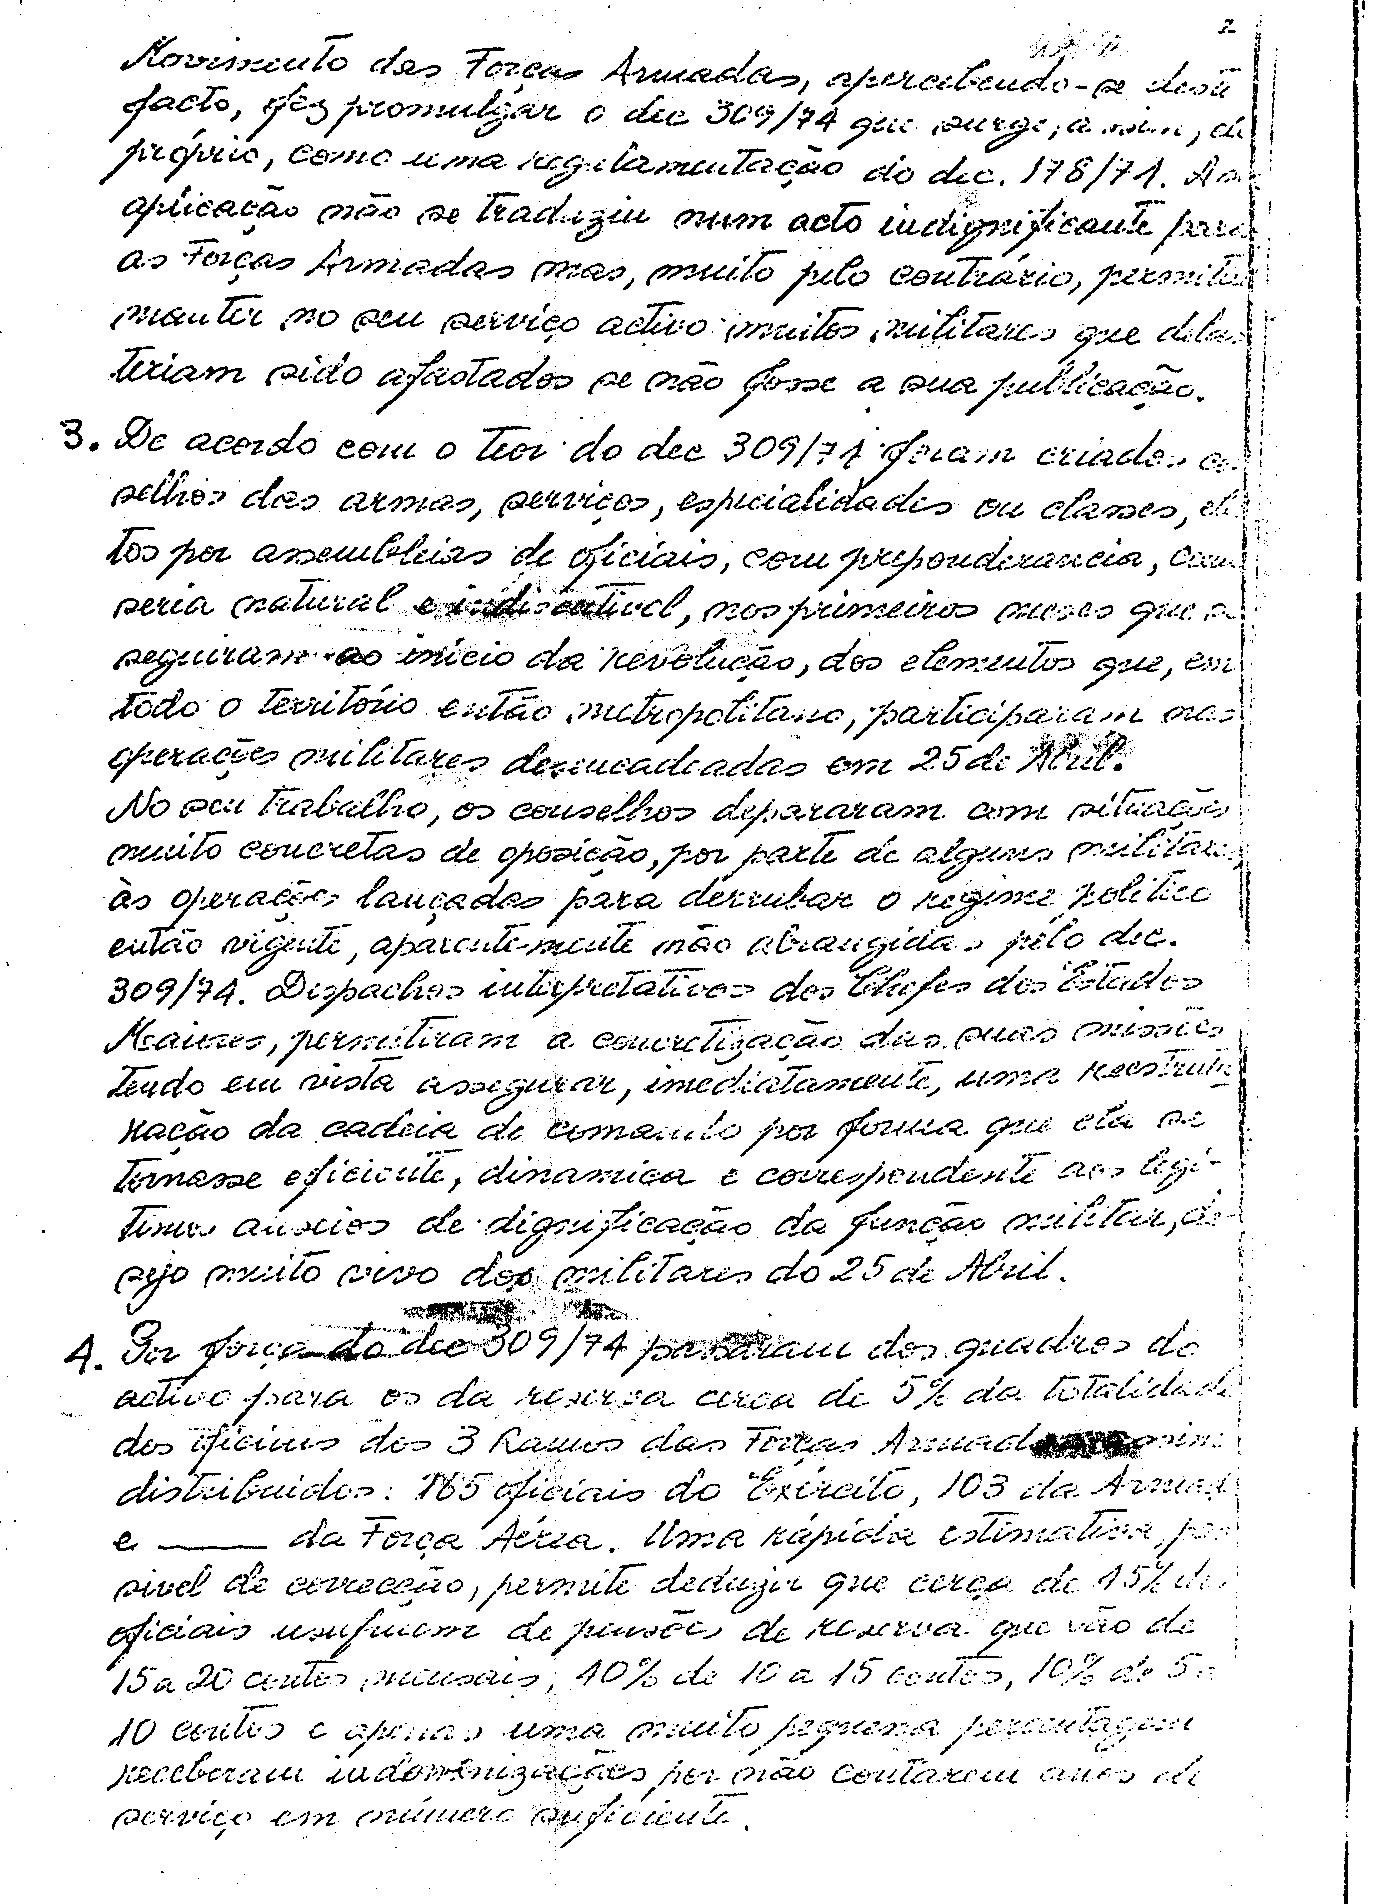 2
Movimento das Forças Armadas, apercebendo-se deste
facto, fez promulgar o dec 309/74 que surge, assim, de
próprio, como uma regulamentação do dec. 178/71. A su
aplicação não se traduziu num acto indignificante para
as Forças Armadas mas, muito pelo contrário, permitiu
manter no seu serviço activo muitos militares que delas
teriam sido afastados se não fosse a sua publicação.
3. De acordo com o teor do dec 309/74 foram criados co
selhos das armas, serviços, especialidades ou classes, elei
tos por assembleias de oficiais, com preponderancia, como
seria natural e indiscutivel, nos primeiros meses que se
seguiram ao início da revolução, dos elementos que, em
todo o território então metropolitano, participaram nas
operações militares desencadeadas em 25 de Abril.
No seu trabalho, os conselhos depararam com situações
muito concretas de oposição, por parte de alguns militares
às operações lançadas para derrubar o regime politico
então vigente, aparentemente não abrangidas pelo dec.
309/74. Despachos interpretativos dos Chefes dos Estados
Maiores, permitiram a concretização das suas missões
tendo em vista assegurar, imediatamente, uma reestrutu
ração da cadeia de comando por forma que ela se
tornasse eficiente, dinamica e correspondente aos legi-
timos anseios de dignificação da função militar, de-
sejo muito vivo dos militares do 25 de Abril.
4. Por força do dec 309/74 passaram dos quadros do
activo para os da reserva cerca de 5% da totalidade
dos oficiais dos 3 Ramos das Forças Armadas assim
distribuidos: 165 oficiais do Exército, 103 da Armad
e ____ da Força Aérea. Uma rápida estimativa, pas
sivel de correcção, permite deduzir que cerca de 15% dos
oficiais usufruem de pensões de reserva que vão de
15 a 20 contos mensais, 40% de 10 a 15 contos, 10% de 5 a
10 contos e apenas uma muito pequena percentagem
receberam indominizações por não contarem anos de
serviço em número suficiente.